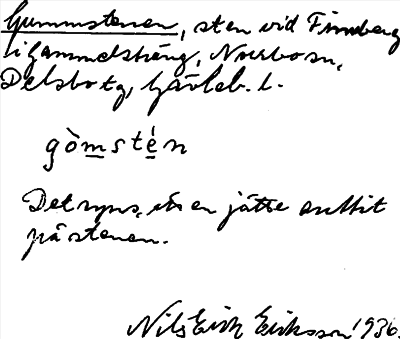 Gummstenen, sten vid Finnberg
i Gammelsträng, Norrbo sn,
Delsbo tg, Gävleb. l.
gòmstén
Det syns, en jätte suttit
på stenen.
Nils Erik Eriksson 1936.